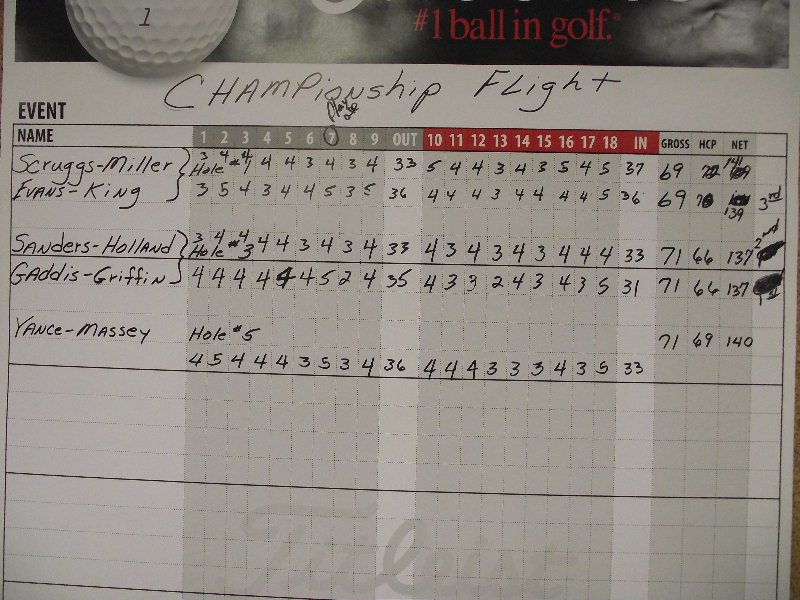 1
#1 ball in golf.®
CHAMPionship FLight
EVENT
NAME 1 2 3 4 5 6 7 8 9 OUT 10 11 12 13 14 15 16 17 18 IN GROSS HCP NET
Play off
3 4 4
Scruggs-Miller Hole #1 4 4 3 4 3 4 33 5 4 4 3 4 3 5 4 5 37 69 72 141
EVANS-KING 3 5 4 3 4 4 5 3 5 36 4 4 4 3 4 4 4 4 5 36 69 70 139 3rd
3 4 4
SANders-Holland Hole #3 4 4 3 4 3 4 33 4 3 4 3 4 3 4 4 4 33 71 66 137 2nd
GAddis-Griffin 4 4 4 4 4 4 5 2 4 35 4 3 3 2 4 3 4 3 5 31 71 66 137 1st
YANCE-MASSEY Hole #5 71 69 140
4 5 4 4 4 3 5 3 4 36 4 4 4 3 3 3 4 3 5 33
Titleist